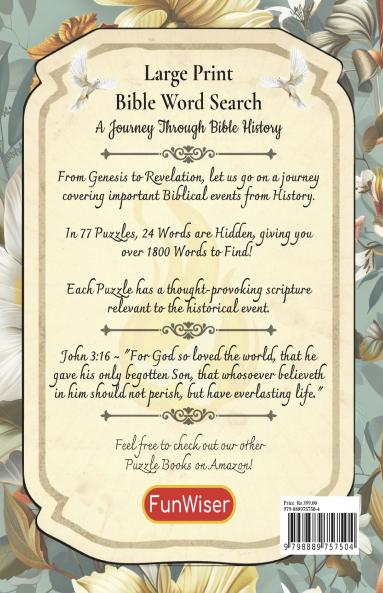 Large Print
Bible Word Search
A Journey Through Bible History
From Genesis to Revelation, let us go on a journey
covering important Biblical events from History.
In 77 Puzzles, 24 Words are Hidden, giving you
over 1800 Words to Find!
Each Puzzle has a thought-provoking scripture
relevant to the historical event.
John 3:16 ~ "For God so loved the world, that he
gave his only begotten Son, that whosoever believeth
in him should not perish, but have everlasting life."
Feel free to check out our other
Puzzle Books on Amazon!
FunWiser
Price: Rs 399.00
979-888975750-4
9 798889 757504